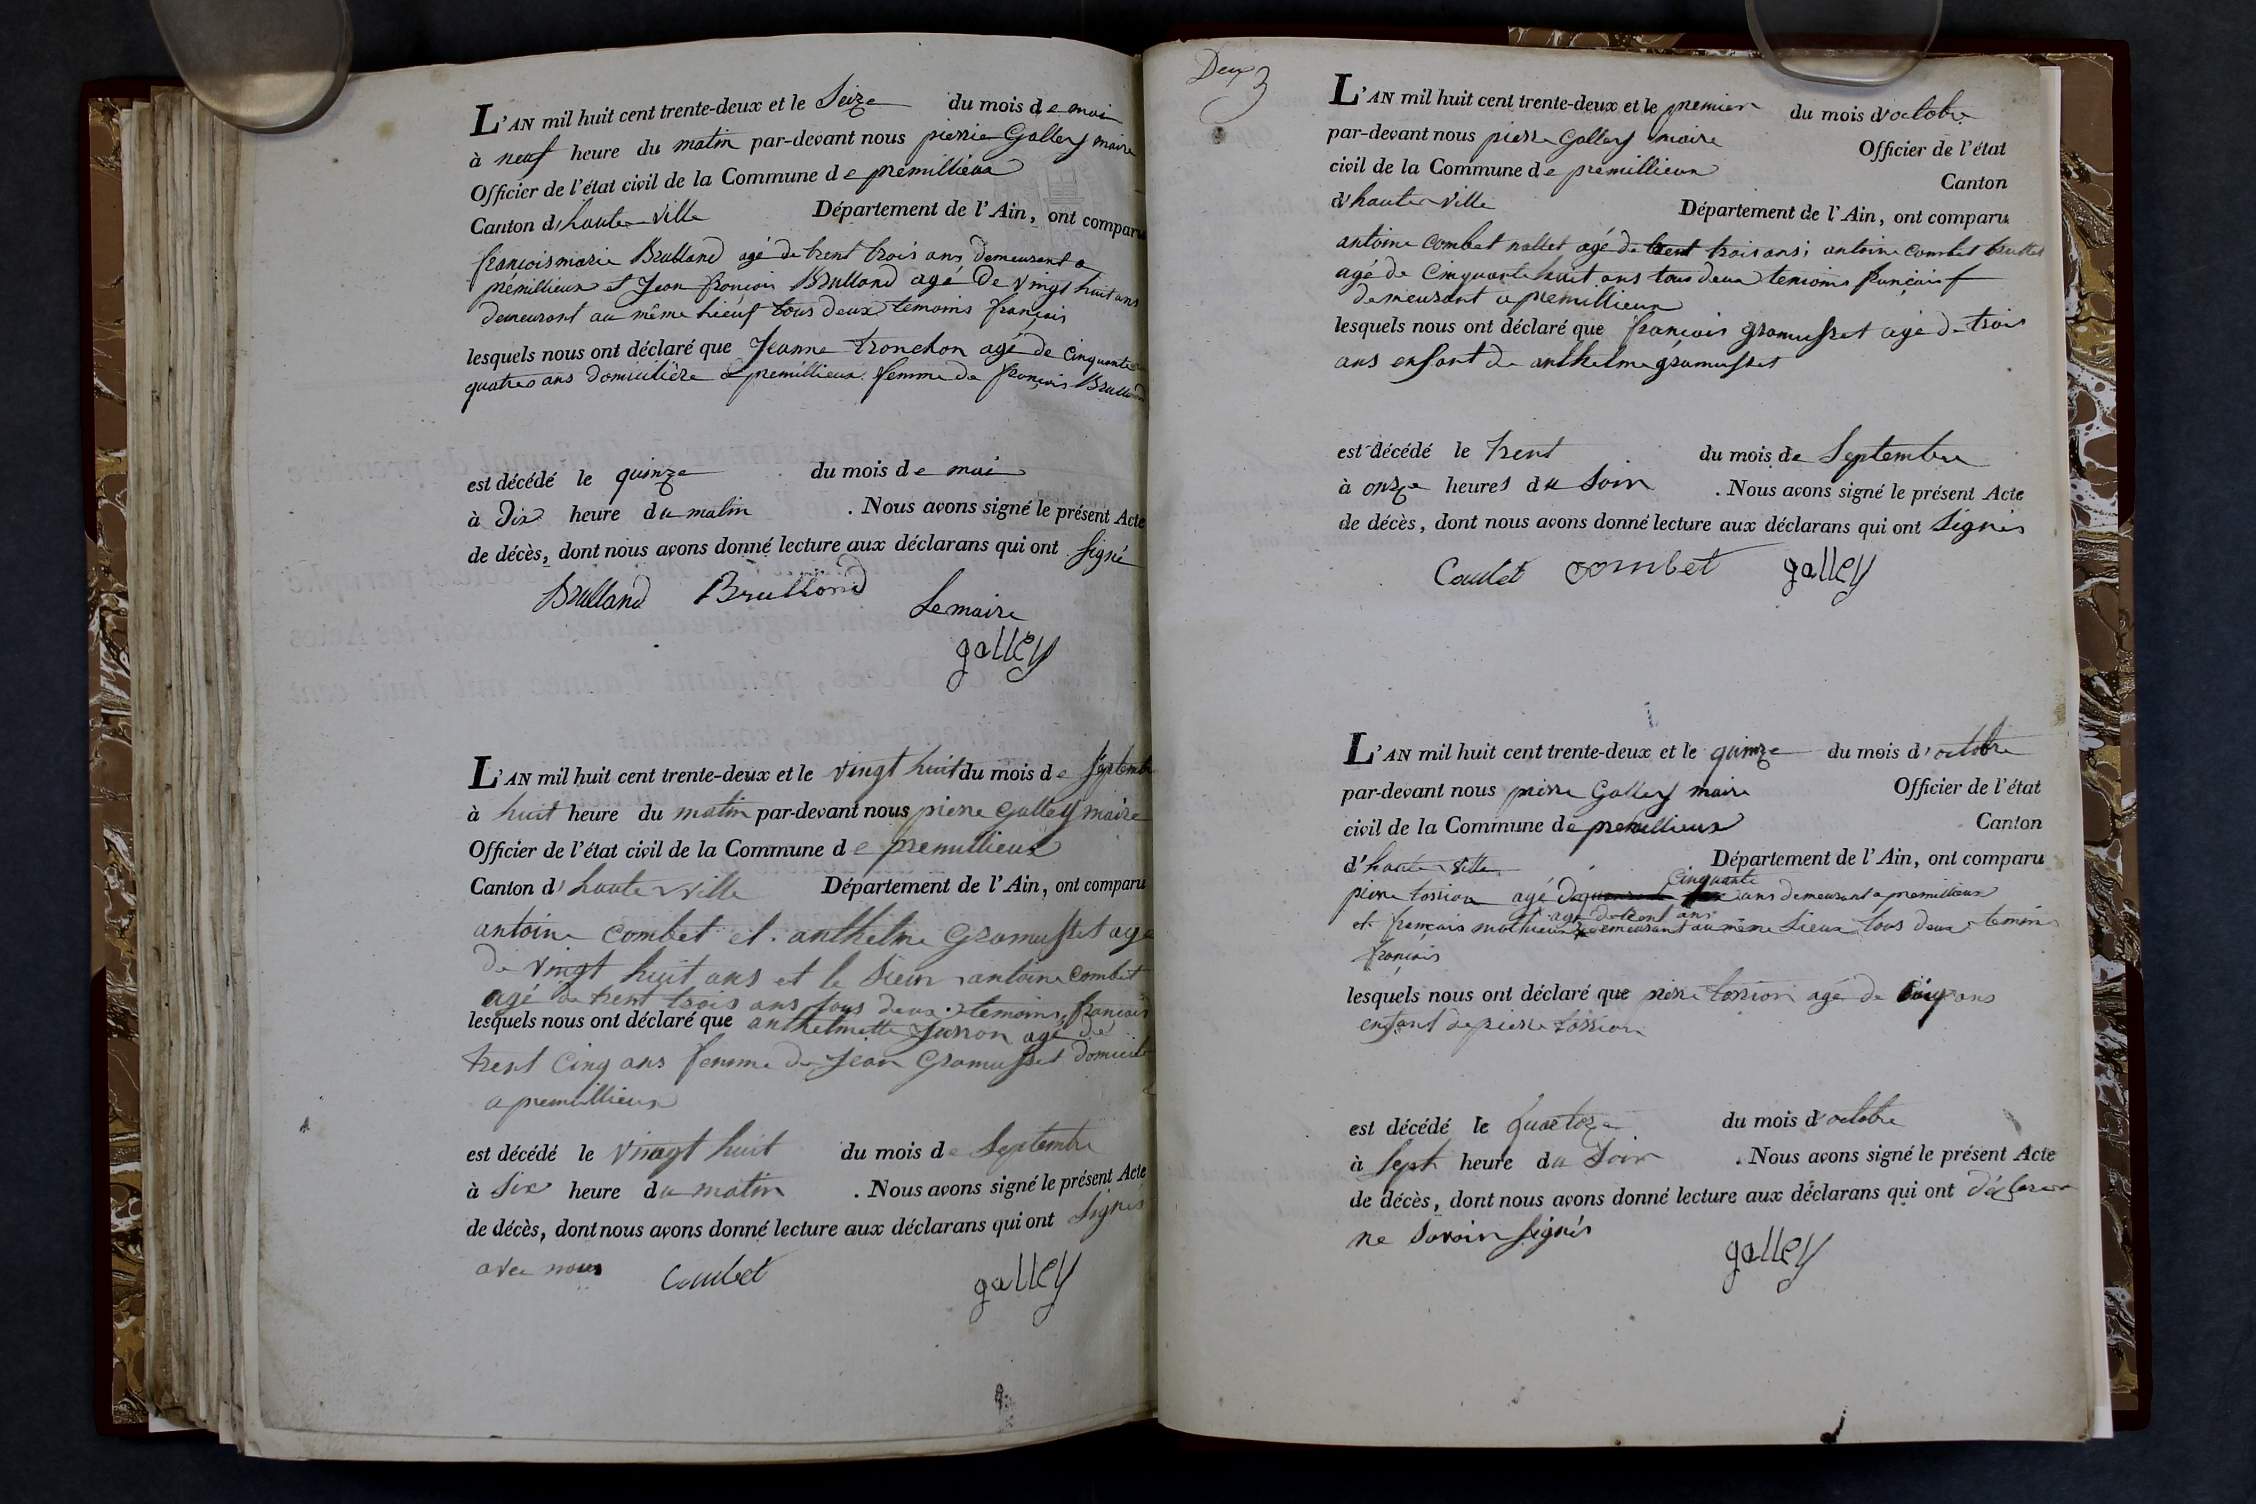 L'AN mil huit cent trente-deux et le Seize du mois de mai
à neuf heure du matin par-devant nous pierre Galley maire
Officier de l'état civil de la Commune de premillieux
Canton d'haute ville Département de l'Ain, ont comparu
francoismarie Brulland agé de trent trois ans demeurant a
prémillieux et Jean françois Brulland agé De vingt huit ans
demeurant au même lieux tous deux temoins français
lesquels nous ont déclaré que Jeanne tronchon agé de Cinquante
quatre ans domicilière a premillieux femme de françois Brulland
est décédé le quinze du mois de mai
à Dix heure du matin . Nous avons signé le présent Acte
de décès, dont nous avons donné lecture aux déclarans qui ont Signé
Brulland Brulland Le maire
galley
L'AN mil huit cent trente-deux et le vingt huit du mois de Septembre
à huit heure du matin par-devant nous pierre Galley maire
Officier de l'état civil de la Commune de premillieux
Canton d'haute ville Département de l'Ain, ont comparu
antoine Combet et anthelme Gramusset age
De vingt huit ans et le Sieur antoine Combet
agé de trent trois ans tous deux temoins francais
lesquels nous ont déclaré que anthelmette Juron agé de
trent Cinq ans femme de Jean Gramusset domicile
a premillieux
est décédé le vinegt huit du mois de Septembre
à Six heure du matin . Nous avons signé le présent Acte
de décès, dont nous avons donné lecture aux déclarans qui ont Signés
avec nous Combet galley
Deux
L'AN mil huit cent trente-deux et le premier du mois d'octobre
par-devant nous pierre Galley maire Officier de l'état
civil de la Commune de premillieux Canton
d'haute ville Département de l'Ain, ont comparu
antoine Combet nallet agé de trent trois ans; antoine Combet
agé de Cinquante huit ans tous deux temoins français
demeurant a premillieux
lesquels nous ont déclaré que françois gramusset agé de trois
ans enfant de anthelme gramusset
est décédé le trent du mois de Septembre
à onze heures du Soir . Nous avons signé le présent Acte
de décès, dont nous avons donné lecture aux déclarans qui ont Signés
Combet combet galley
L'AN mil huit cent trente-deux et le quinze du mois d'octobre
par-devant nous pierre Galley maire Officier de l'état
civil de la Commune de premillieux Canton
d'haute ville Département de l'Ain, ont comparu
Cinquante
pierre tossion agé De ans demeurant a premillieux
agé de trent ans
et françois mathieux demeurant au même Lieux tous deux temoins
français
lesquels nous ont déclaré que pierre tossion agé de ans
enfant de pierre tossion
est décédé le quatorze du mois d'octobre
à Sept heure du Soir . Nous avons signé le présent Acte
de décès, dont nous avons donné lecture aux déclarans qui ont déclarer
ne Savoir Signés
galley